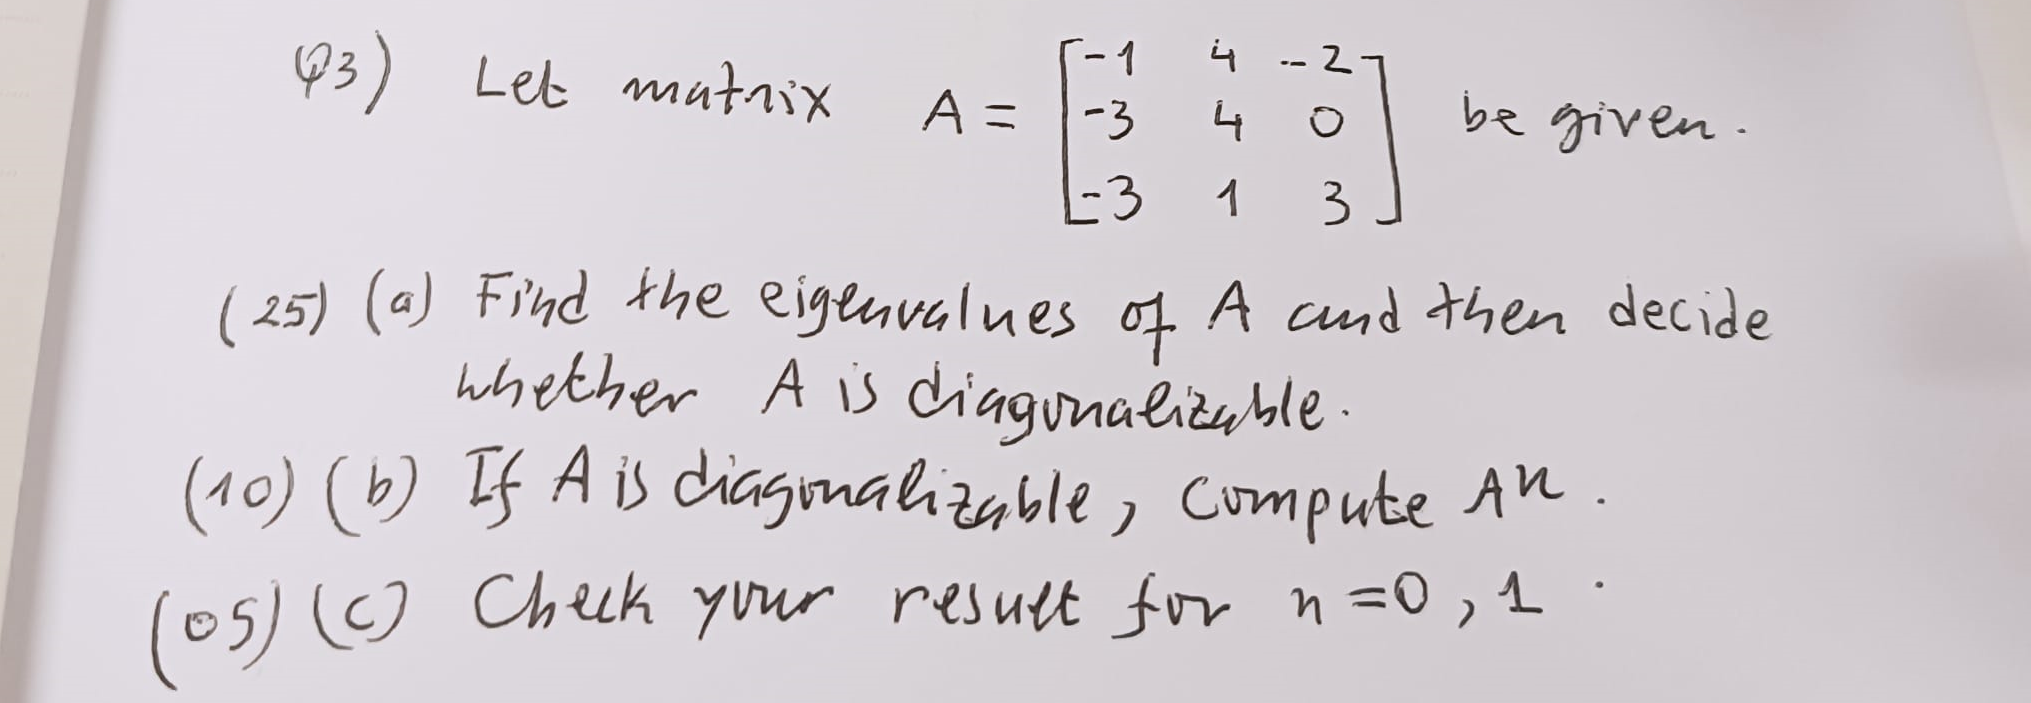 Q3) Let matrix A = [-1 4 -2
-3 4 0
-3 1 3] be given.
(25) (a) Find the eigenvalues of A and then decide
whether A is diagonalizable.
(10) (b) If A is diagonalizable, compute Aⁿ.
(05) (c) Check your result for n=0, 1.